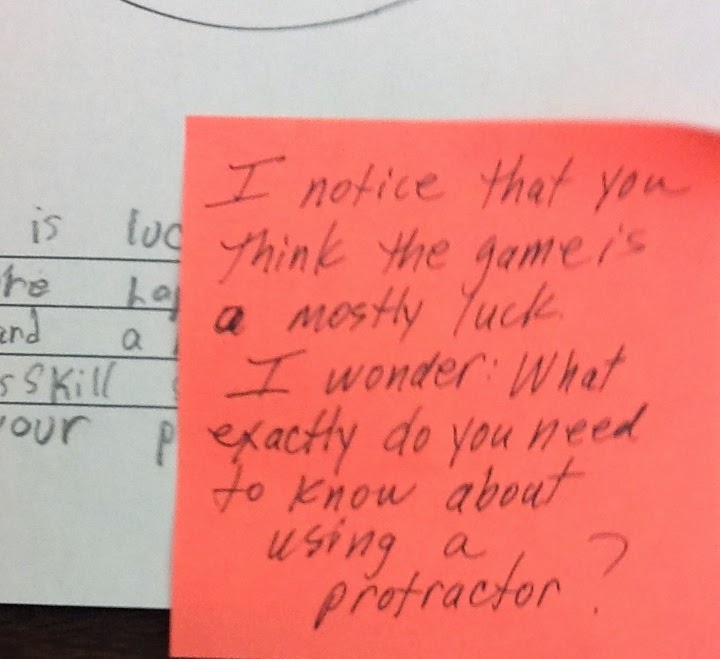 I notice that you
think the game is
a mostly luck.
I wonder: What
exactly do you need
to know about
using a
protractor?
is luc
and a
skill
your p